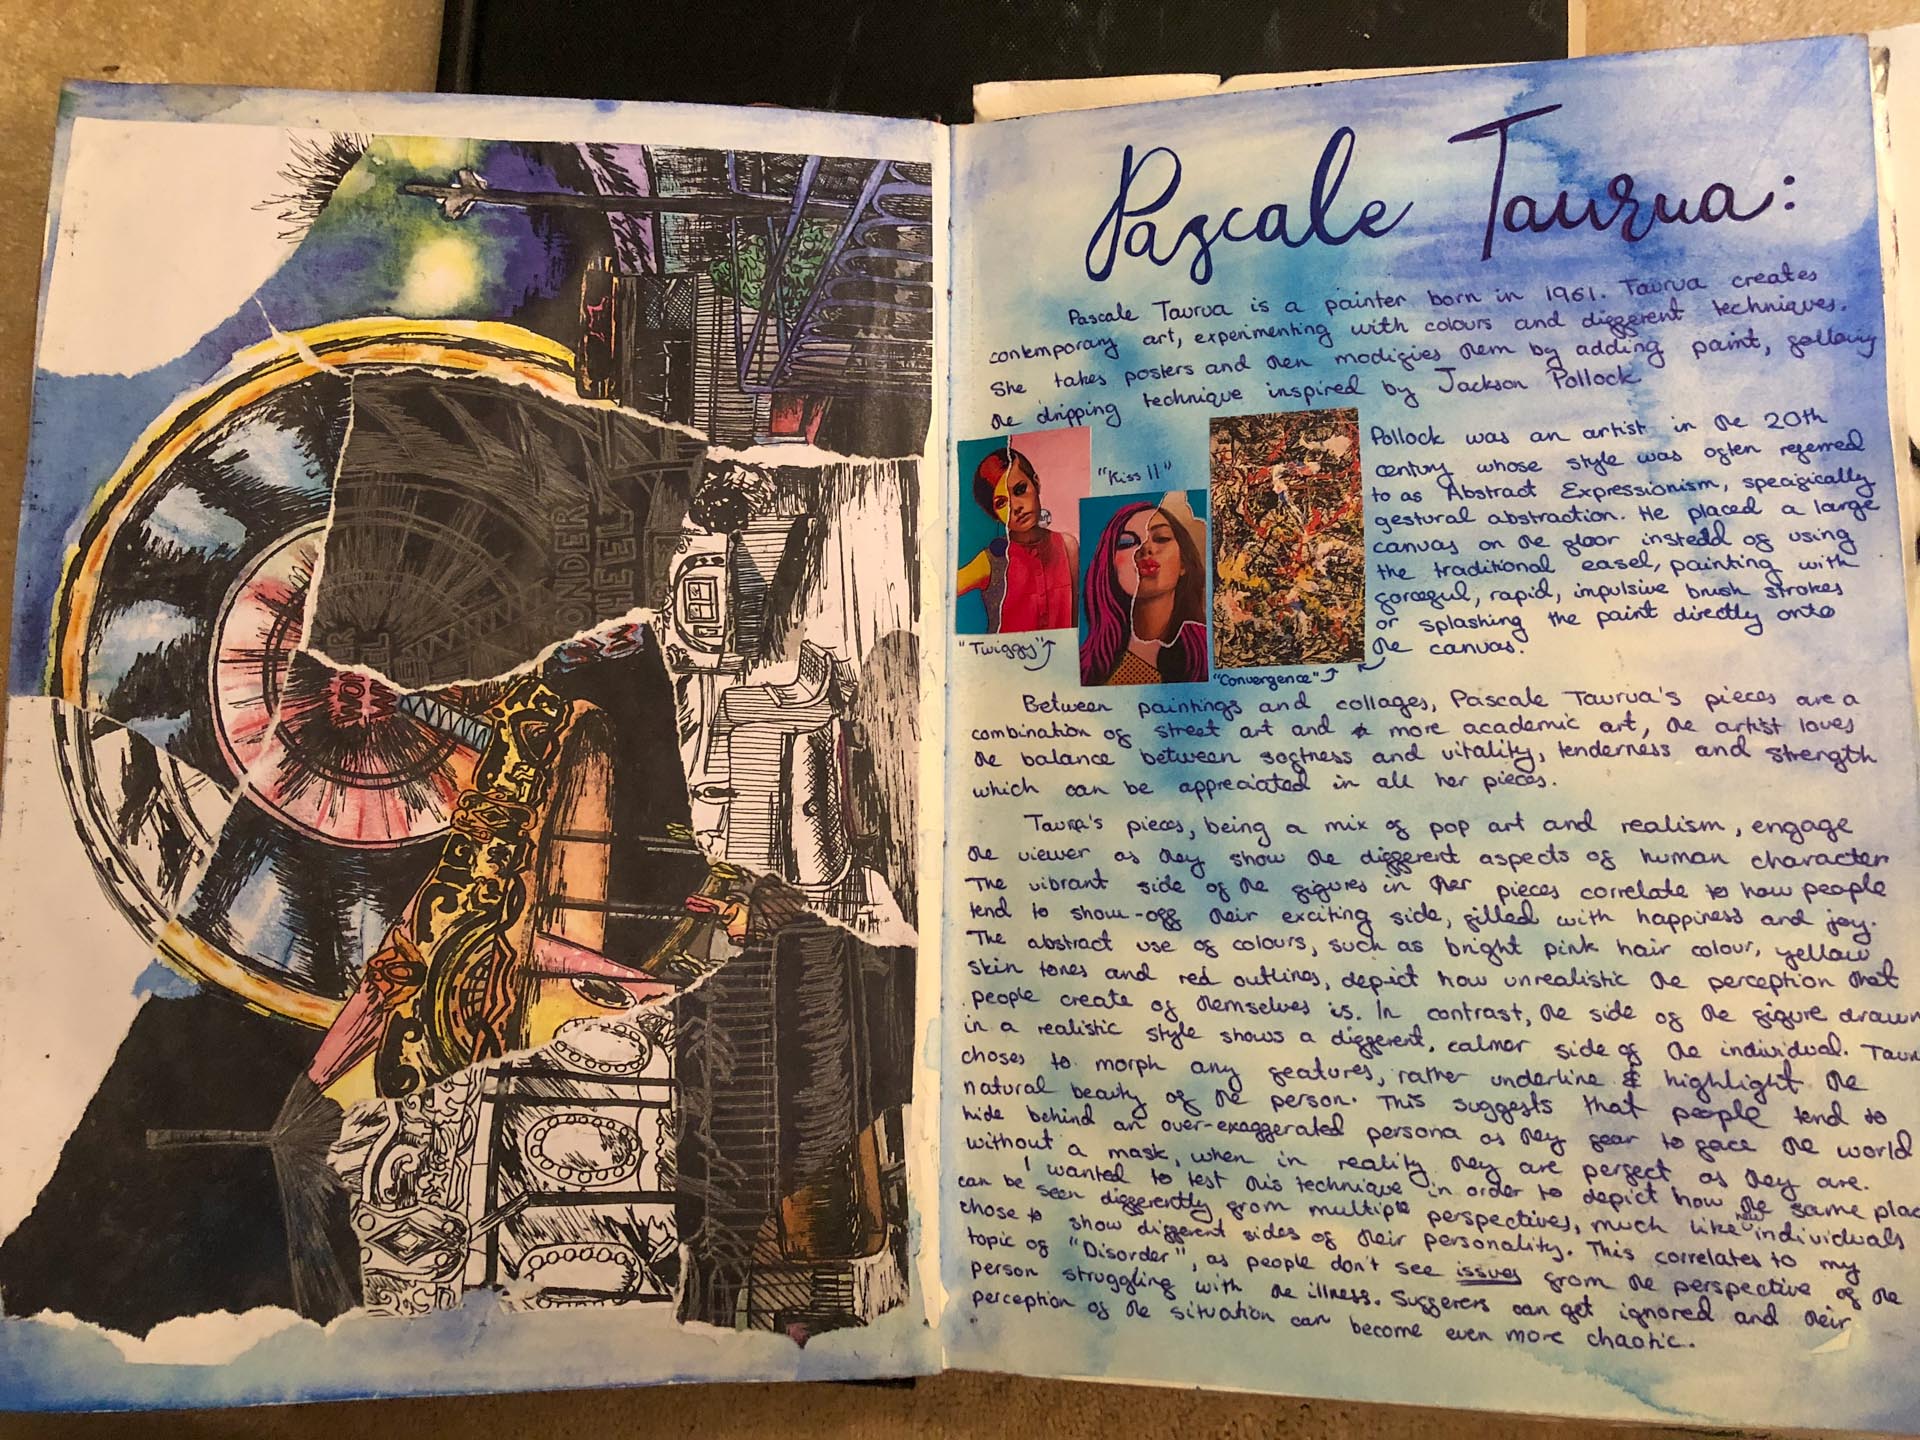 WONDER
WHEEL
WON
Pascale Taurua:
Pascale Taurua is a painter born in 1961. Taurua creates
contemporary art, experimenting with colours and different techniques.
She takes posters and then modifies them by adding paint, following
the dripping technique inspired by Jackson Pollock
"Kiss II"
"Twiggy"
"Convergence"
Pollock was an artist in the 20th
century whose style was often referred
to as Abstract Expressionism, specifically
gestural abstraction. He placed a large
canvas on the floor instedd of using
the traditional easel, painting with
forceful, rapid, impulsive brush strokes
or splashing the paint directly onto
the canvas.
Between paintings and collages, Pascale Taurua's pieces are a
combination of street art and more academic art, the artist loves
the balance between softness and vitality, tenderness and strength
which can be appreciated in all her pieces.
Taura's pieces, being a mix of pop art and realism, engage
the viewer as they show the different aspects of human character
The vibrant side of the figures in her pieces correlate to how people
tend to show-off their exciting side, filled with happiness and joy.
The abstract use of colours, such as bright pink hair colour, yellow
skin tones and red outlines, depict how unrealistic the perception that
people create of themselves is. In contrast, the side of the figure drawn
in a realistic style shows a different, calmer side of the individual. Taur
choses to morph any features, rather underline & highlight the
natural beauty of the person. This suggests that people tend to
hide behind an over-exaggerated persona as they fear to face the world
without a mask, when in reality they are perfect as they are.
I wanted to test this technique in order to depict how the same plac
can be seen differently from multiple perspectives, much like how individuals
chose to show different sides of their personality. This correlates to my
topic of "Disorder", as people don't see issues from the perspective of the
person struggling with the illness. Sufferers can get ignored and their
perception of the situation can become even more chaotic.